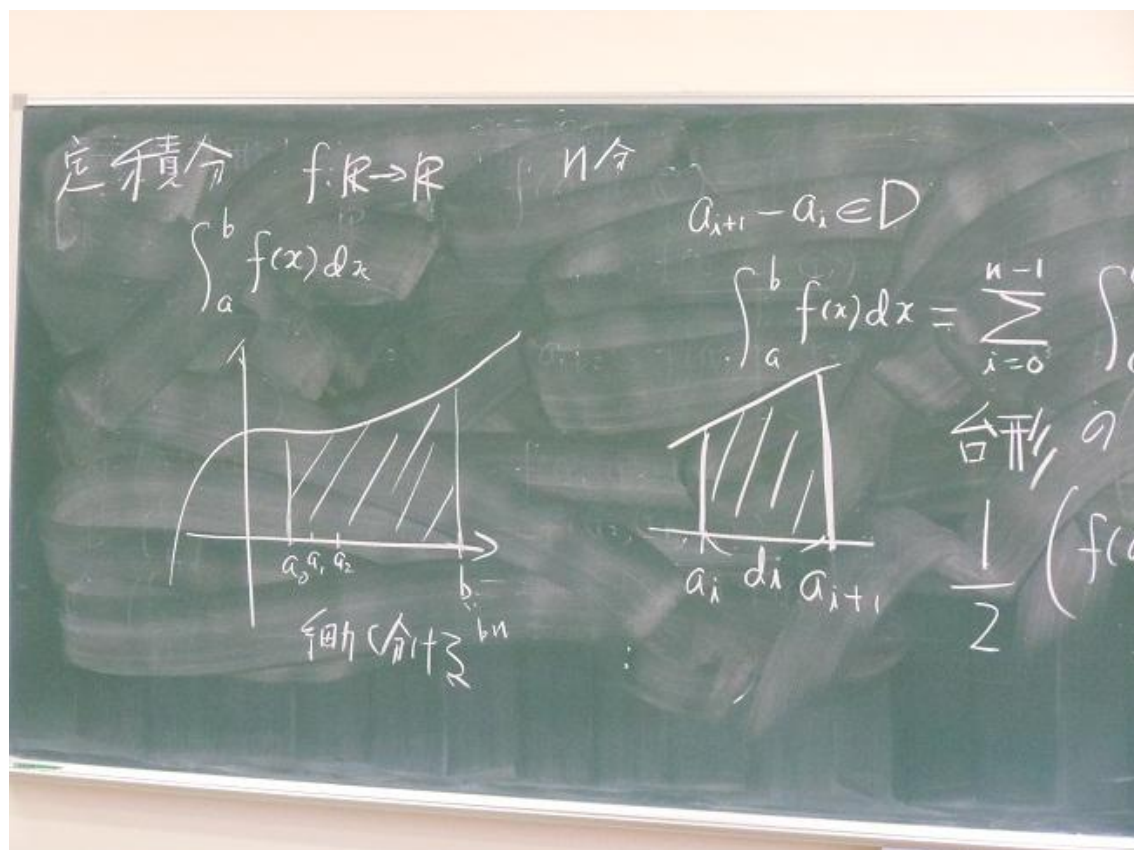 定積分 f:ℝ→ℝ
∫_a^b f(x)dx
a₀ a₁ a₂ b
bn
細かく分ける
n分
a_{i+1} - a_i ∈ D
∫_a^b f(x)dx = Σ_{i=0}^{n-1} ∫
a_i di a_{i+1}
台形の
1/2 (f(